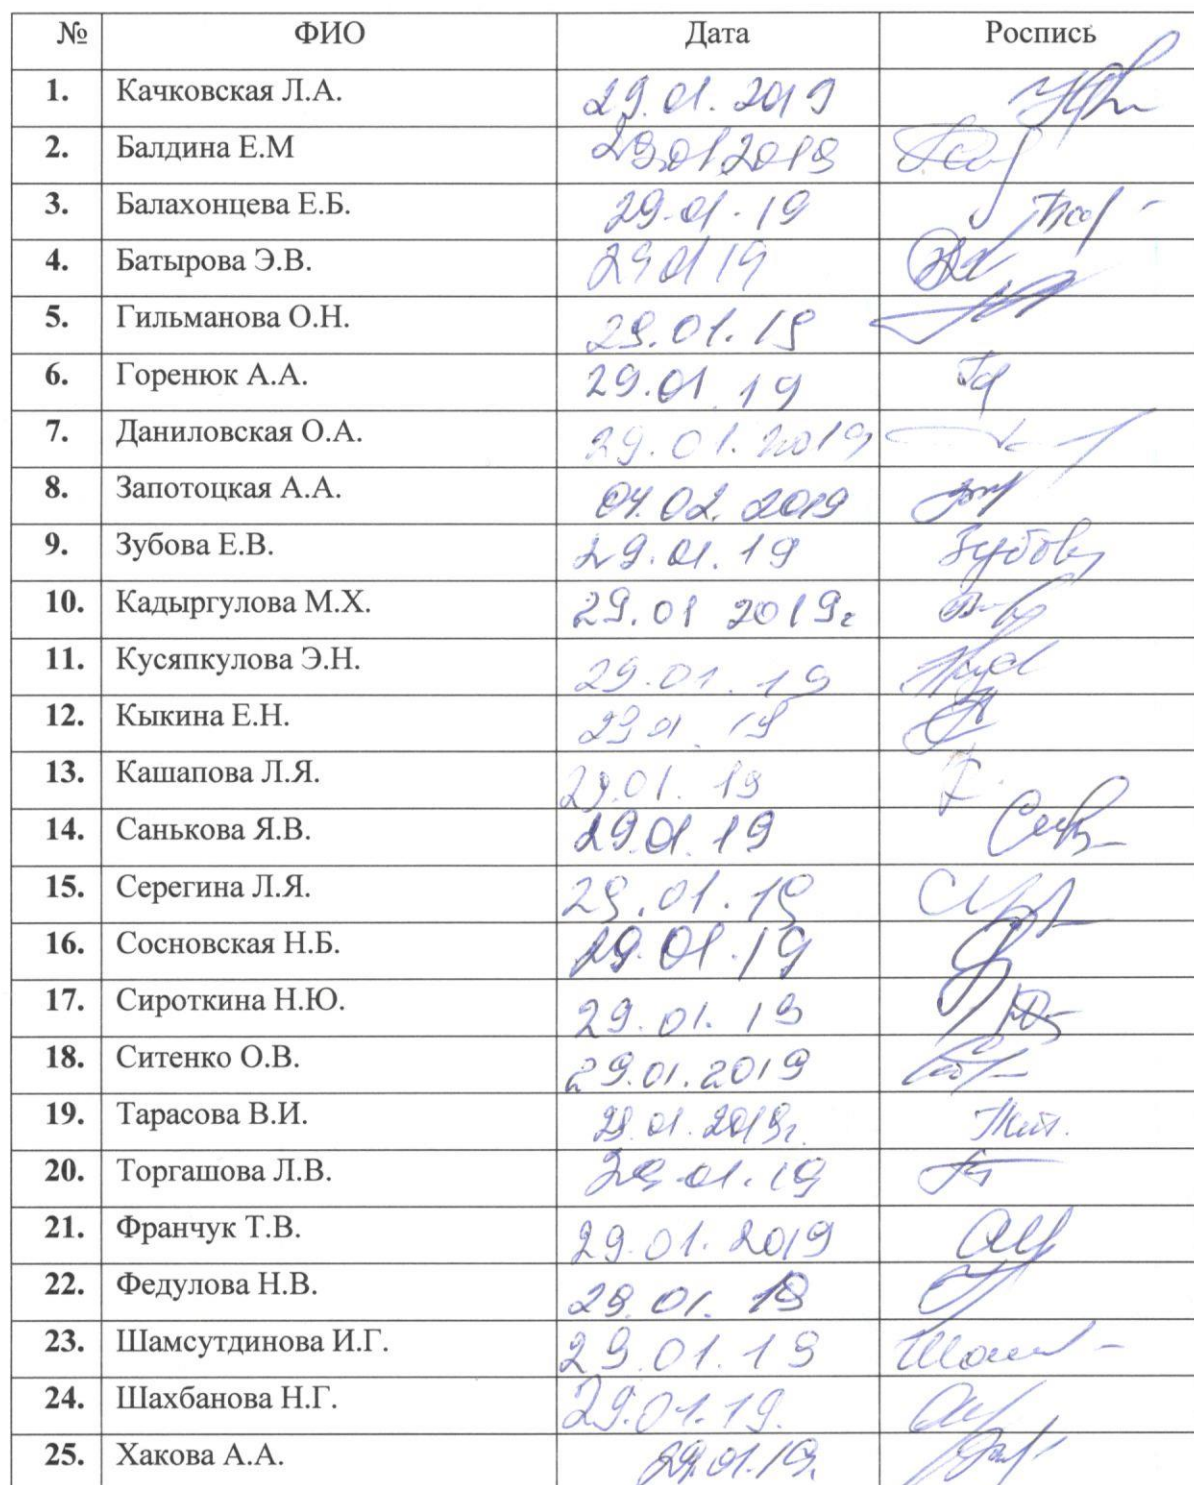 № ФИО Дата Роспись
1. Качковская Л.А. 29.01.2019
2. Балдина Е.М 29.01 2019
3. Балахонцева Е.Б. 29.01.19
4. Батырова Э.В. 29 01 19
5. Гильманова О.Н. 29.01.19
6. Горенюк А.А. 29.01.19
7. Даниловская О.А. 29.01.2019
8. Запотоцкая А.А. 04.02.2019
9. Зубова Е.В. 29.01.19 Зубова
10. Кадыргулова М.Х. 29.01 2019г
11. Кусяпкулова Э.Н. 29.01.19
12. Кыкина Е.Н. 29 01 19
13. Кашапова Л.Я. 29.01.19
14. Санькова Я.В. 29.01.19
15. Серегина Л.Я. 29.01.19
16. Сосновская Н.Б. 29.01.19
17. Сироткина Н.Ю. 29.01.19
18. Ситенко О.В. 29.01.2019
19. Тарасова В.И. 29.01.2019г.
20. Торгашова Л.В. 29.01.19
21. Франчук Т.В. 29.01.2019
22. Федулова Н.В. 29.01.19
23. Шамсутдинова И.Г. 29.01.19
24. Шахбанова Н.Г. 29.01.19.
25. Хакова А.А. 29.01.19.